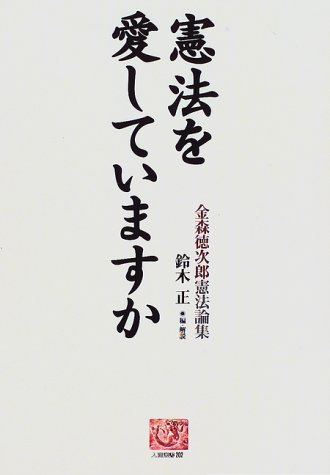 憲法を
愛していますか
金森徳次郎憲法論集
鈴木 正●編・解説
人間選書 202